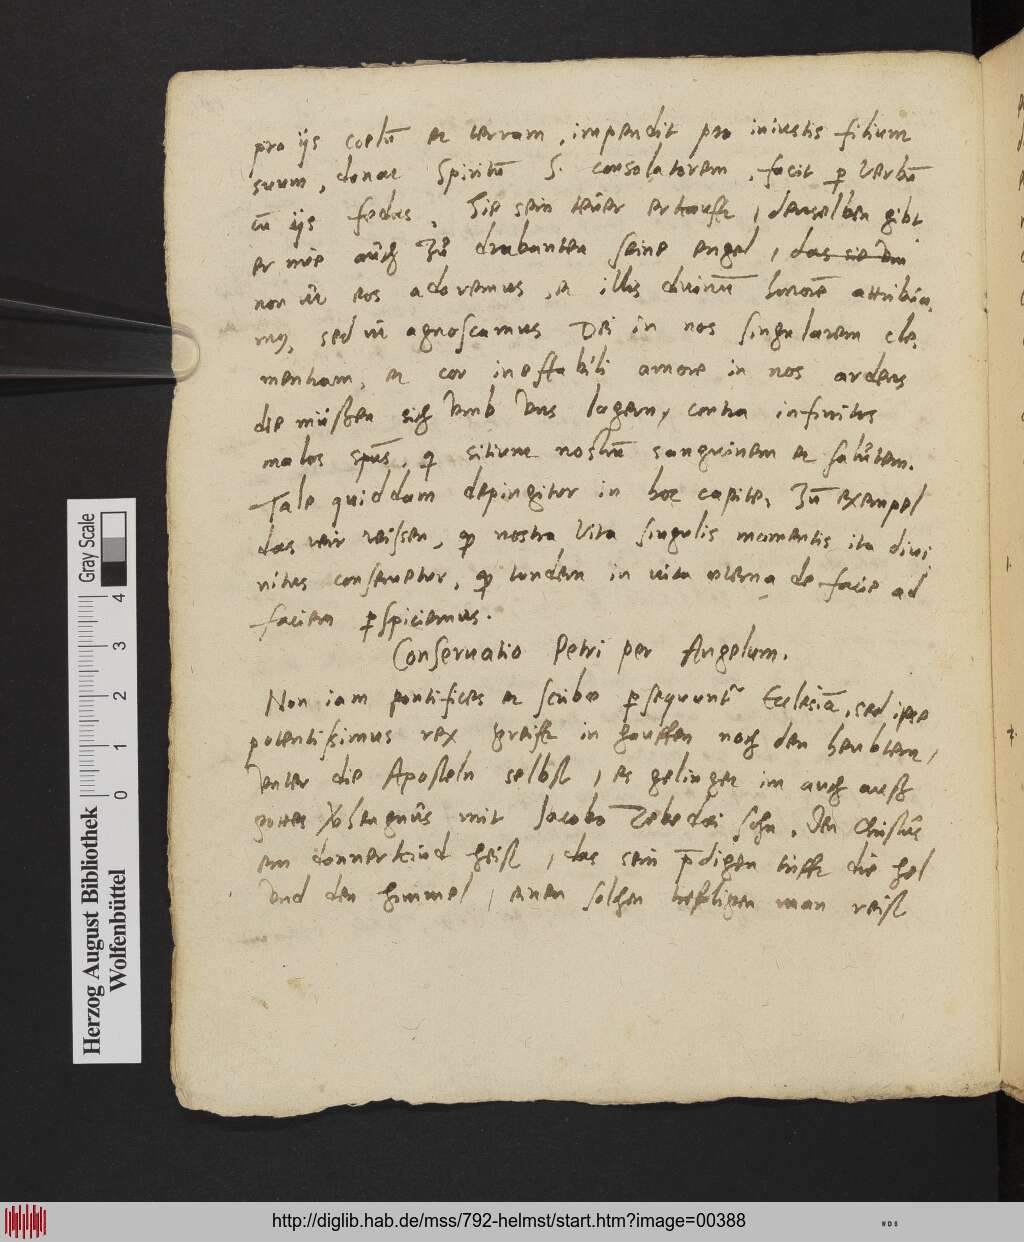 pro ijs coelū et terram, impendit pro iniustis filium
suum, donat Spiritū S. consolatorem, facit p Verbū
cū ijs fedus, Sie sein teüer erkaufft, denselben gibt
er nue aüch zü drabanten seine engel, das sie
non ut eos adoremus, et illis diuinū honorē attribua,
mus, sed ut agnoscamus Dei in nos singularem cle,
mentiam, et cor ineffabili amore in nos ardens
die müssen sich vmb vns lagern, contra infinitos
malos spūs, q sitiunt nostrū sanguinem et salutem.
Tale quiddam depingitur in hoc capite, Zū exempel
das wir wissen, qd nostra Vita singulis momentis ita diui
nitus conseruetur, qd tandem in vita aeterna de facie ad
faciem pspiciemus.
Conseruatio Petri per Angelum.
Non iam pontifices et scribae psequunt Ecclesiā, sed ipse
potentissimus rex greifft in hauffen noch den heubtern,
vnter die Aposteln selbst, es gelinget im auch auss
gottes mit Jacobo Zebedei sohn, Den Christus
ein donnerkind heist, das sein pdigen trifft die hel
vnd den himmel, einen solchen hefftigen man reist
Herzog August Bibliothek
Wolfenbüttel
Gray Scale
0 1 2 3 4
http://diglib.hab.de/mss/792-helmst/start.htm?image=00388